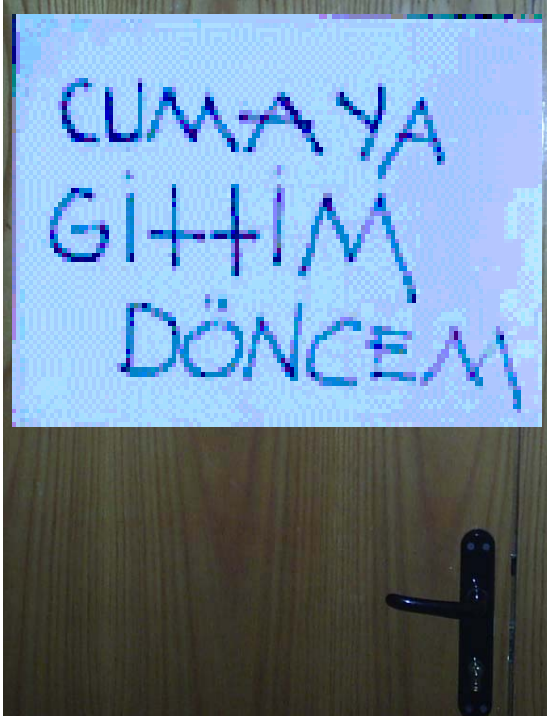 CUMAYA
GİttİM
DÖNCEM